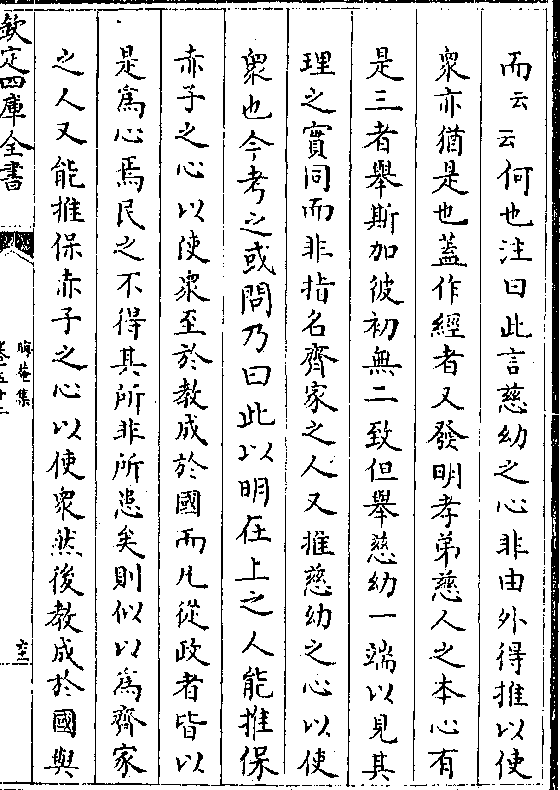 而云云何也注曰此言慈幼之心非由外得推以使
衆亦猶是也蓋作經者又發明孝弟慈人之本心有
是三者舉斯加彼初無二致但舉慈幼一端以見其
理之實同而非指名齊家之人又推慈幼之心以使
衆也今考之或問乃曰此以明在上之人能推保
赤子之心以使衆至於教成於國而凡從政者皆以
是爲心焉民之不得其所非所患矣則似以爲齊家
之人又能推保赤子之心以使衆然後教成於國與
欽定四庫全書
晦菴集